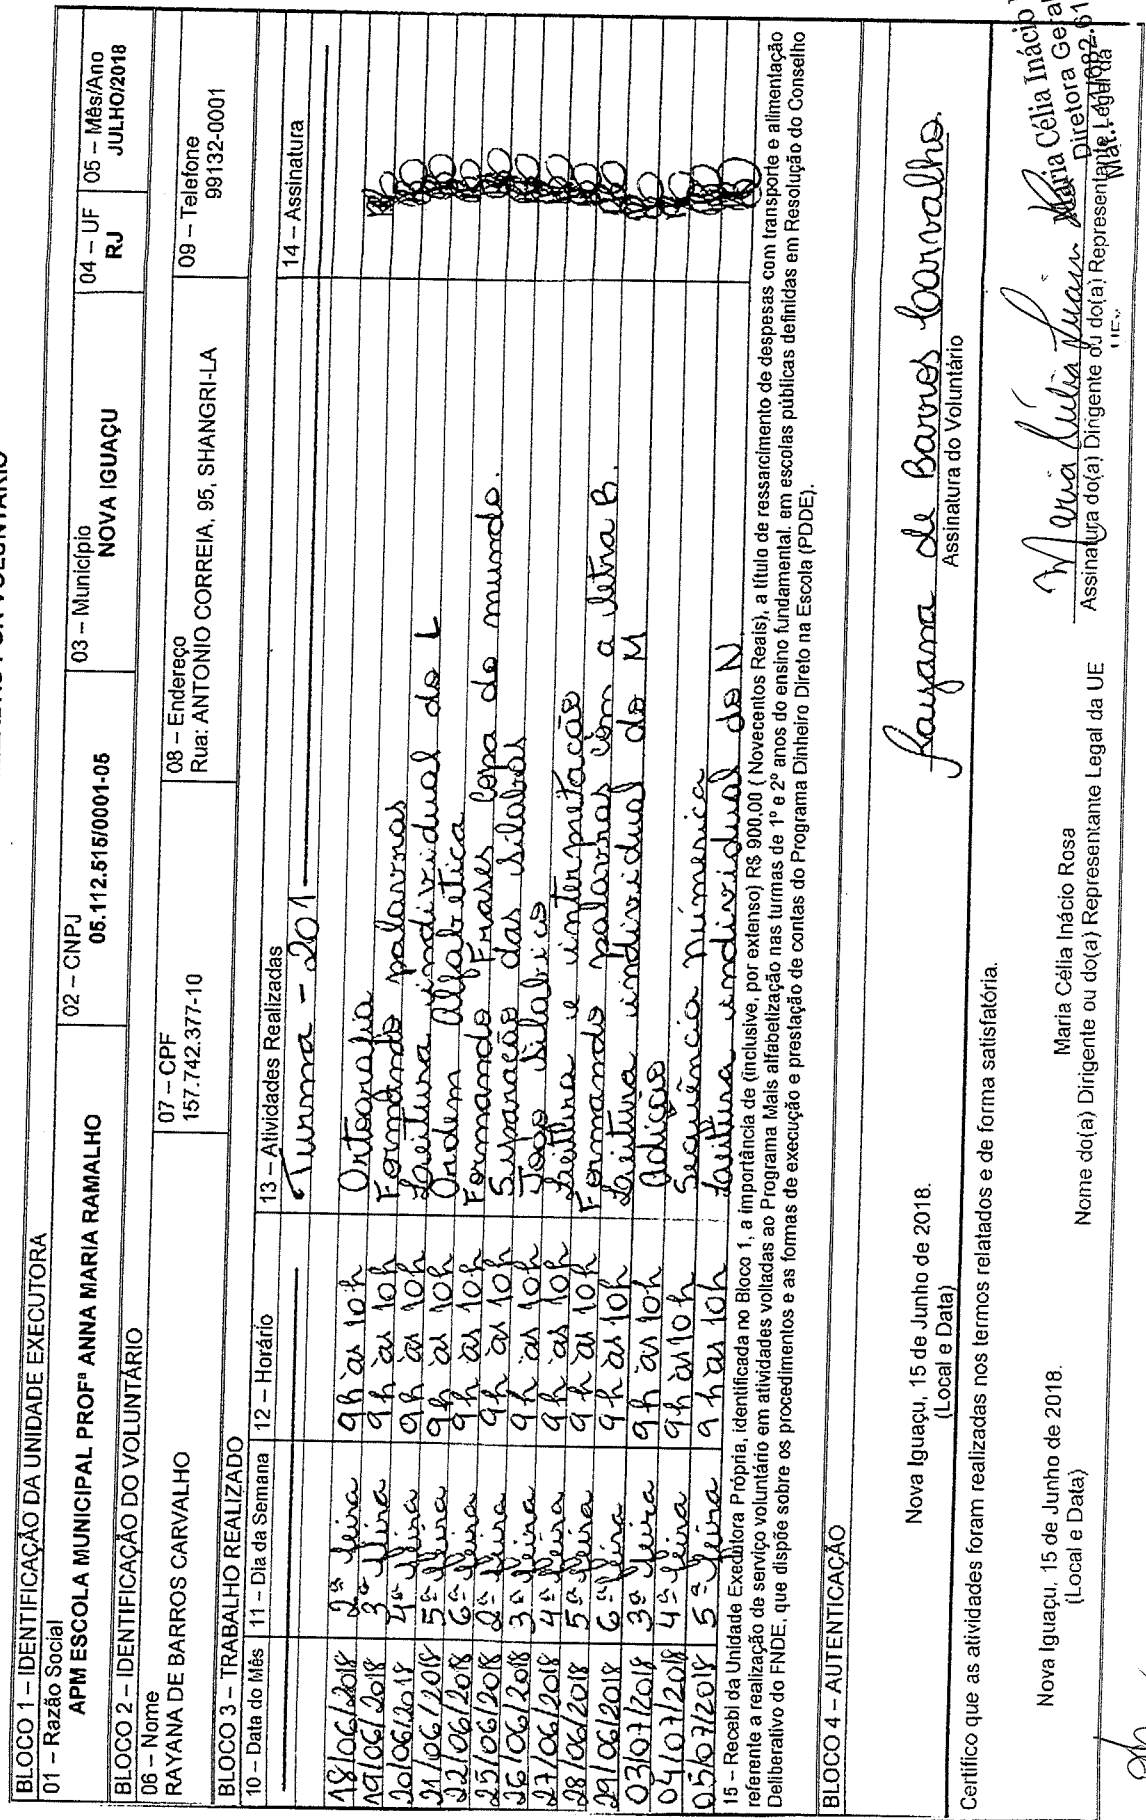 BLOCO 1 – IDENTIFICAÇÃO DA UNIDADE EXECUTORA
01 – Razão Social
APM ESCOLA MUNICIPAL PROFª ANNA MARIA RAMALHO
02 – CNPJ
05.112.515/0001-05
03 – Município
NOVA IGUAÇU
04 – UF
RJ
05 – Mês/Ano
JULHO/2018
BLOCO 2 – IDENTIFICAÇÃO DO VOLUNTÁRIO
06 – Nome
RAYANA DE BARROS CARVALHO
07 – CPF
157.742.377-10
08 – Endereço
Rua: ANTONIO CORREIA, 95, SHANGRI-LA
09 – Telefone
99132-0001
BLOCO 3 – TRABALHO REALIZADO
10 – Data do Mês 11 – Dia da Semana 12 – Horário 13 – Atividades Realizadas 14 – Assinatura
Turma – 201
18/06/2018 2ª feira 9h às 10h Ortografia
19/06/2018 3ª feira 9h às 10h Formando palavras
20/06/2018 4ª feira 9h às 10h Leitura individual do L
21/06/2018 5ª feira 9h às 10h Ordem Alfabética
22/06/2018 6ª feira 9h às 10h Formando Frases Copa do mundo.
25/06/2018 2ª feira 9h às 10h Separação das sílabas
26/06/2018 3ª feira 9h às 10h Jogo silábico
27/06/2018 4ª feira 9h às 10h Leitura e interpretação
28/06/2018 5ª feira 9h às 10h Formando palavras com a letra B.
29/06/2018 6ª feira 9h às 10h Leitura individual do M
03/07/2018 3ª feira 9h às 10h Adição
04/07/2018 4ª feira 9h às 10h Sequência númerica
05/07/2018 5ª feira 9h às 10h Leitura individual do N
15 – Recebi da Unidade Executora Própria, identificada no Bloco 1, a importância de (inclusive, por extenso) R$ 900,00 ( Novecentos Reais), a título de ressarcimento de despesas com transporte e alimentação
referente a realização de serviço voluntário em atividades voltadas ao Programa Mais alfabetização nas turmas de 1º e 2º anos do ensino fundamental. em escolas públicas definidas em Resolução do Conselho
Deliberativo do FNDE, que dispõe sobre os procedimentos e as formas de execução e prestação de contas do Programa Dinheiro Direto na Escola (PDDE).
BLOCO 4 – AUTENTICAÇÃO
Nova Iguaçu, 15 de Junho de 2018.
(Local e Data)
Rayana de Barros Carvalho.
Assinatura do Voluntário
Certifico que as atividades foram realizadas nos termos relatados e de forma satisfatória.
Nova Iguaçu, 15 de Junho de 2018.
(Local e Data)
Maria Célia Inácio Rosa
Nome do(a) Dirigente ou do(a) Representante Legal da UE
Maria Célia Inácio
Diretora Geral
Assinatura do(a) Dirigente ou do(a) Representante Legal da